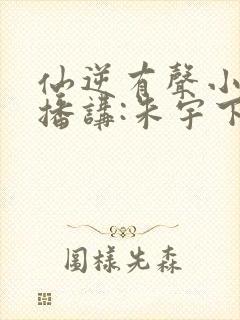 仙逆有聲小
播講:朱宇下
圖樣先森